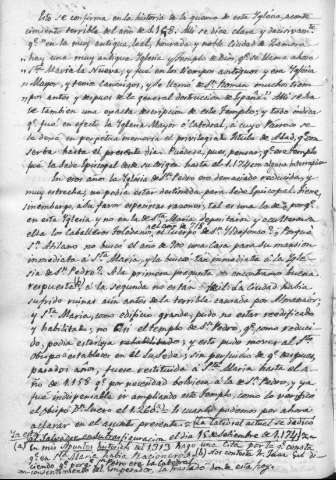 Esto se confirma en la historia de la guerra de esta Iglesia, aconte
cimiento terrible del año de 1158. Allí se dice clara y
qe en la muy antigua, leal, honrada y noble ciudad de Zamora
hay una muy antigua Iglesia y Templo de Dios, qe se llama ahora
Sta María la Nueva, y fué en los tiempos antiguos y en Iglesia
Mayor, y tenía canónigos, y se llamó de Sn Román mucho tiem
po antes y después de la general destrucción de España. Allí se ha
ce también una exacta descripción de este Templo; y todo indica
qe fué en efecto la Iglesia Mayor o Catedral, a cuyo Párroco se
le daría en perpetua memoria el privilegiado título de Abad, qe con
serva hasta el presente día. Puédese, pues, pensar, qe este Templo
fué la Sede Episcopal desde su origen hasta el 1.174 con alguna interrupción
En esos años la Iglesia de Sn Pedro era demasiado reducida, y
muy estrecha; no podía estar destinada para Sede Episcopal. Tiene,
sin embargo, a su favor especiosas razones; tal es una la de ¿porqe
en esta Iglesia y no en la de Sta María depositaron y ocultaron en
el año de 715
ella los Caballeros toledanos, el cuerpo de Sn Ildefonso? ¿Porqué
Sn Atilano no buscó el año de 900 una Casa para su mansion
inmediata a Sta María, y la buscó tan inmediata a la Igle
sia de Sn Pedro? A la primera pregunta no encontramos buena
respuesta (b) a la segunda no es tan fácil. La Ciudad había
sufrido ruinas aún antes de la terrible causada por Almanzor;
y Sta María, como edificio grande, pudo no estar reedificado
y habilitado; no así el templo de Sn Pedro, qe como reduci
do, podía estar ya rehabilitado; y esto pudo mover al Sto
Obispo establecer en él su Sede; sin perjuicio de qe después,
pasados años, fuera restituida a Sta María hasta el a
ño de 1.158 qe por necesidad volviera a la de Sn Pedro, y ya
fué indispensable el ampliar este Templo, como lo verificó
el obispo Dn Suero el 1.260. Es lo cuanto podemos por ahora
aclarar en el asunto presente. La Catedral actual se radicó
en el Salvador en su transfiguración el día 15 de Setiembre de 1.174
(a) en mis Apuntes históricos al 1913 hago una cita por la qe consta
qe en Sta María había Racioneros
siendo qe porqe Sn Pedro era la Catedral
consentimiento del Emperador, la trasladó donde está hoy.